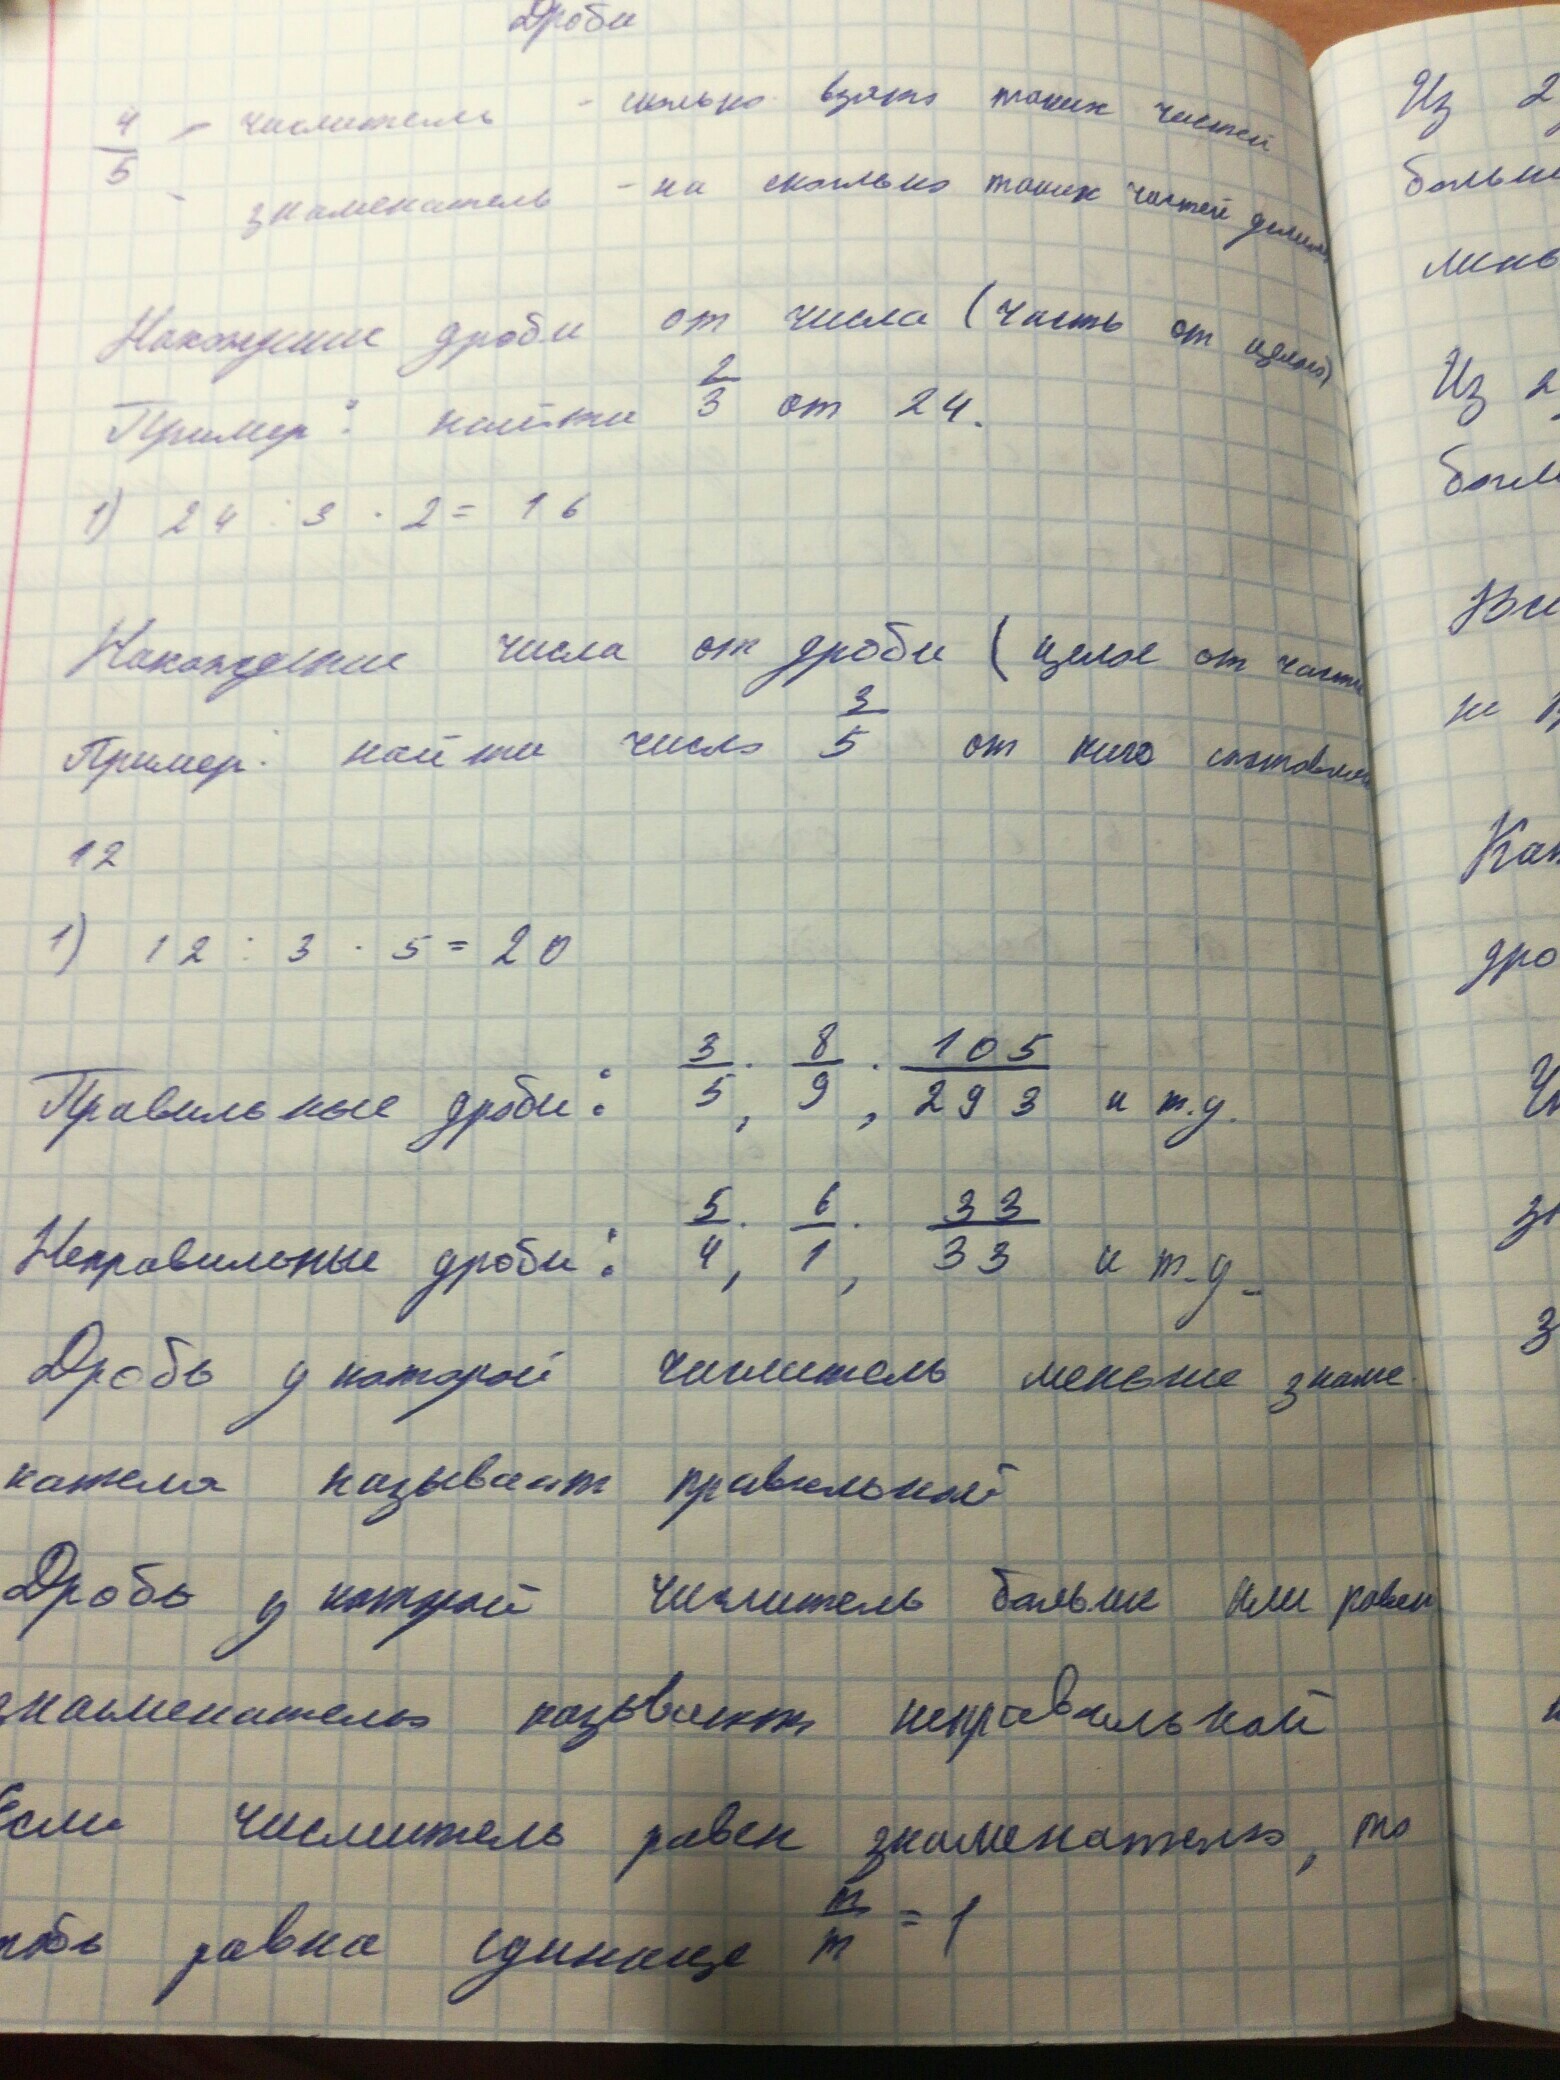 Дроби
4/5 - числитель - сколько взято таких частей
- знаменатель - на сколько таких частей делим
Нахождение дроби от числа (часть от целого)
Пример: найти 2/3 от 24.
1) 24 : 3 · 2 = 16
Нахождение числа от дроби (целое от части
Пример: найти число 3/5 от кого составляет
12
1) 12 : 3 · 5 = 20
Правильные дроби: 3/5, 8/9, 105/293 и т.д.
Неправильные дроби: 5/4, 6/1, 33/33 и т.д.
Дробь у которой числитель меньше знаме-
нателя называют правильной
Дробь у которой числитель больше или равен
знаменателю называют неправильной
Если числитель равен знаменателю, то
дробь равна единице m/m = 1
Из 2
больш
мень
Из 2
больш
Все
не п
Кат
дро
Чи
зн
З